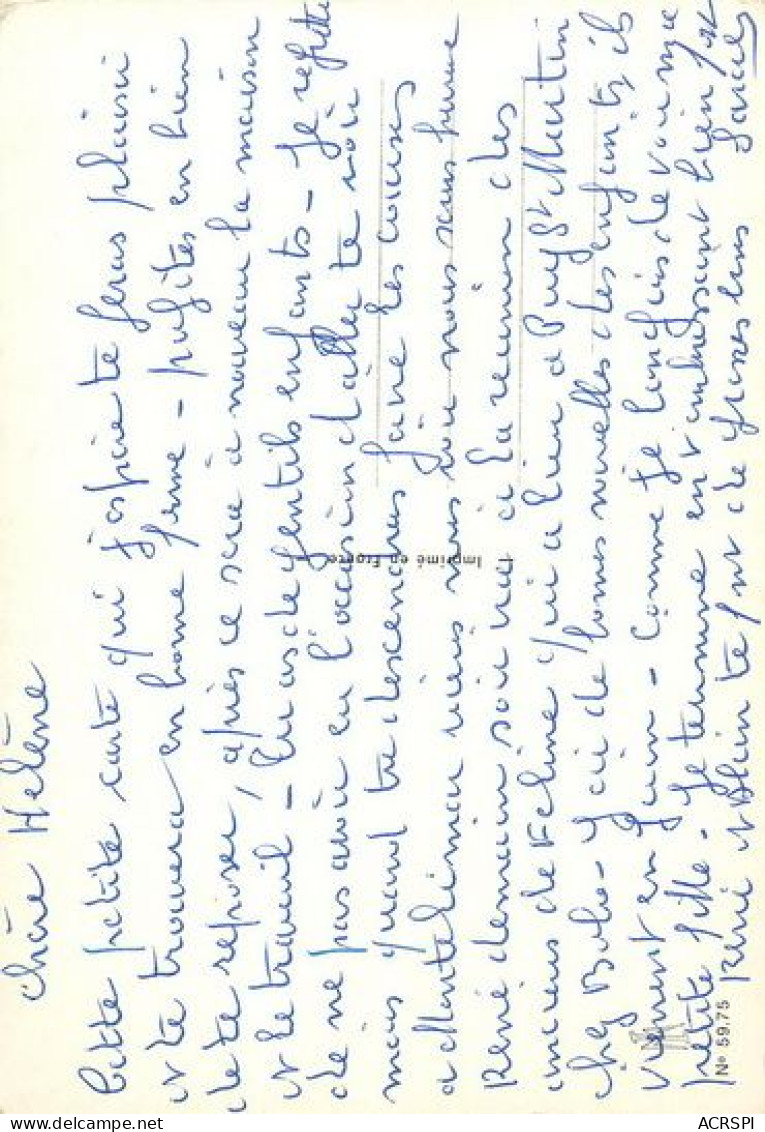 Chère Hélène
Cette petite carte qui j'espère te feras plaisir
et te trouvera en bonne forme - profites en bien
de te reposer, après ce sera à nouveau la maison
et le travail - Tu as de gentils enfants - Je regrette
de ne pas avoir eu l'occasion d'aller te voir
mais quand tu descendras faire les courses
a Montelimar viens nous voir nous sous ferme
René demain soir va à la réunion des
anciens de qui a lieu a Puy St Martin
chez Bebe - J'ai de bonnes nouvelles des enfants, ils
viennent en Juin - Comme je languis de voir ma
petite fille - Je termine en t'embrassant bien fort
René et Alain te font de grosses bises
Imprimé en
N° 59.75
ACRSPI